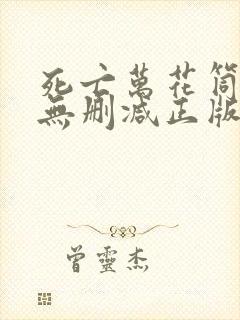 死亡萬花筒
無刪减正版
曾靈杰